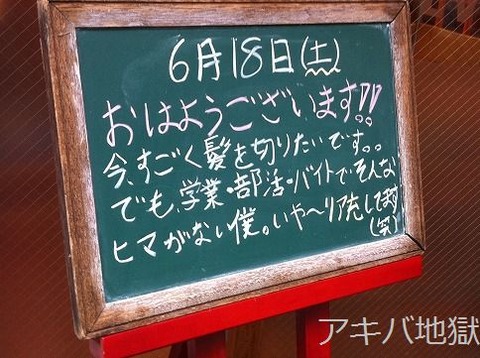 6月18日(土)
おはようございます!!
今、すごく髪を切りたいです。。
でも、学業・部活・バイトで、そんな
ヒマがない僕。いや〜リア充してます
(笑)
アキバ地獄